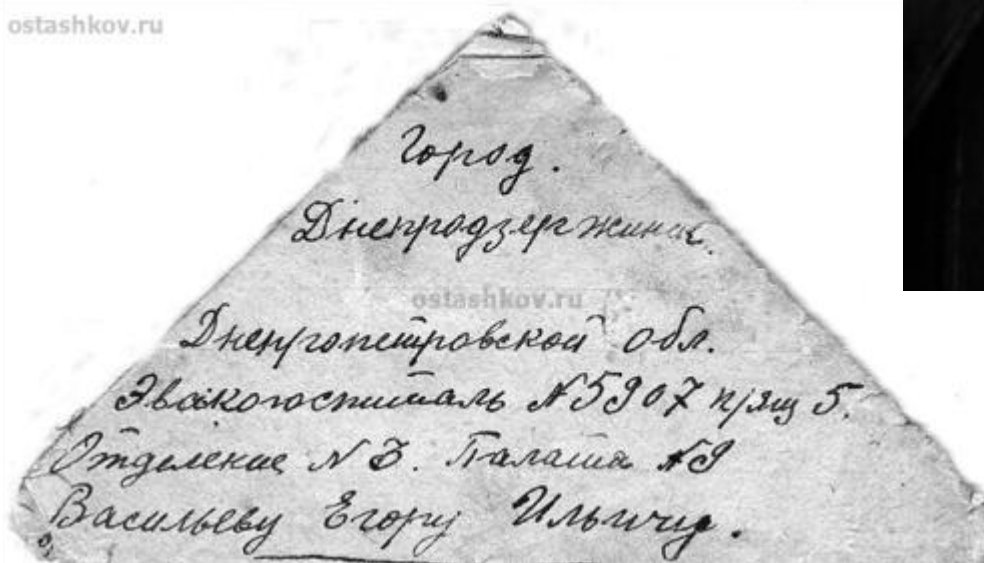 ostashkov.ru
Город.
Днепродзержинск.
ostashkov.ru
Днепропетровской обл.
Эвакогоспиталь №5907 п/ящ 5.
Отделение № 3. Палата №9
Васильеву Егору Ильичу.